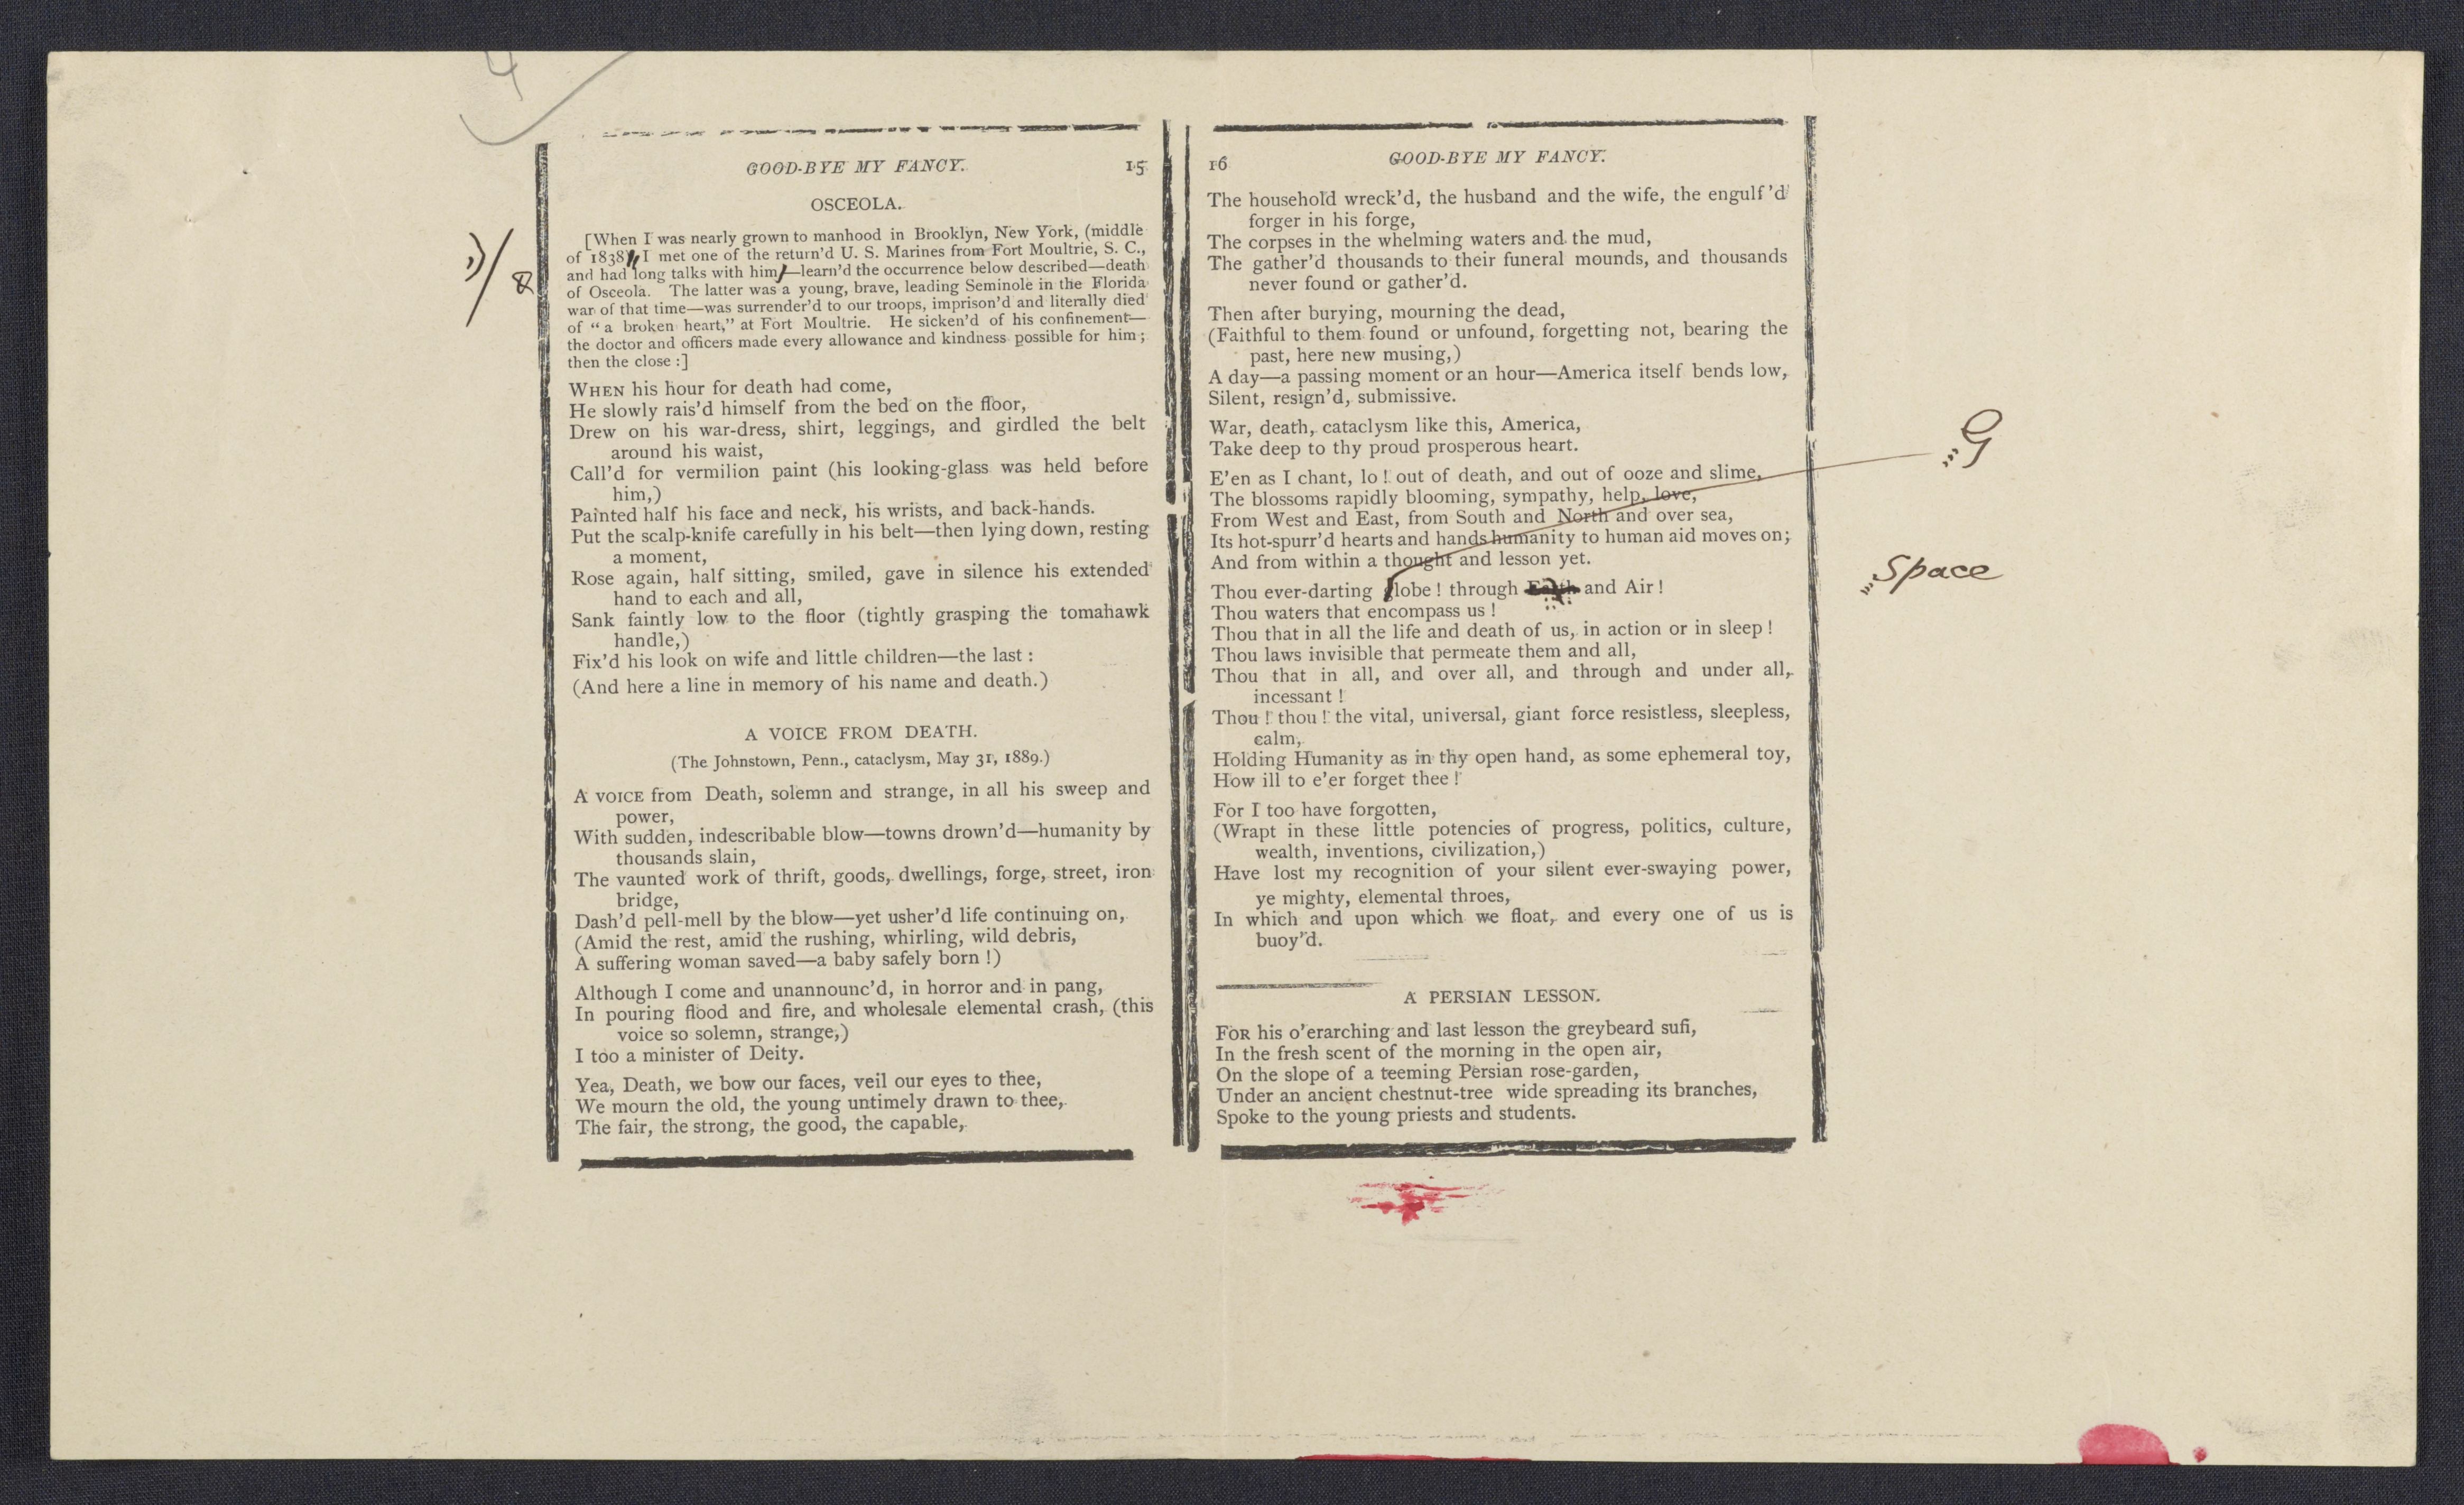 4
GOOD-BYE MY FANCY. 15
OSCEOLA.
[When I was nearly grown to manhood in Brooklyn, New York, (middle
of 1838) I met one of the return'd U. S. Marines from Fort Moultrie, S. C.,
and had long talks with him,—learn'd the occurrence below described—death
of Osceola. The latter was a young, brave, leading Seminole in the Florida
war of that time—was surrender'd to our troops, imprison'd and literally died
of “a broken heart,” at Fort Moultrie. He sicken'd of his confinement—
the doctor and officers made every allowance and kindness possible for him;
then the close:]
WHEN his hour for death had come,
He slowly rais'd himself from the bed on the floor,
Drew on his war-dress, shirt, leggings, and girdled the belt
around his waist,
Call'd for vermilion paint (his looking-glass was held before
him,)
Painted half his face and neck, his wrists, and back-hands.
Put the scalp-knife carefully in his belt—then lying down, resting
a moment,
Rose again, half sitting, smiled, gave in silence his extended
hand to each and all,
Sank faintly low to the floor (tightly grasping the tomahawk
handle,)
Fix'd his look on wife and little children—the last:
(And here a line in memory of his name and death.)
A VOICE FROM DEATH.
(The Johnstown, Penn., cataclysm, May 31, 1889.)
A VOICE from Death, solemn and strange, in all his sweep and
power,
With sudden, indescribable blow—towns drown'd—humanity by
thousands slain,
The vaunted work of thrift, goods, dwellings, forge, street, iron
bridge,
Dash'd pell-mell by the blow—yet usher'd life continuing on,
(Amid the rest, amid the rushing, whirling, wild debris,
A suffering woman saved—a baby safely born!)
Although I come and unannounc'd, in horror and in pang,
In pouring flood and fire, and wholesale elemental crash, (this
voice so solemn, strange,)
I too a minister of Deity.
Yea, Death, we bow our faces, veil our eyes to thee,
We mourn the old, the young untimely drawn to thee,
The fair, the strong, the good, the capable,
16 GOOD-BYE MY FANCY.
The household wreck'd, the husband and the wife, the engulf'd
forger in his forge,
The corpses in the whelming waters and the mud,
The gather'd thousands to their funeral mounds, and thousands
never found or gather'd.
Then after burying, mourning the dead,
(Faithful to them found or unfound, forgetting not, bearing the
past, here new musing,)
A day—a passing moment or an hour—America itself bends low,
Silent, resign'd, submissive.
War, death, cataclysm like this, America,
Take deep to thy proud prosperous heart.
E'en as I chant, lo! out of death, and out of ooze and slime,
The blossoms rapidly blooming, sympathy, help, love,
From West and East, from South and North and over sea,
Its hot-spurr'd hearts and hands humanity to human aid moves on;
And from within a thought and lesson yet.
Thou ever-darting globe! through Earth and Air!
Thou waters that encompass us!
Thou that in all the life and death of us, in action or in sleep!
Thou laws invisible that permeate them and all,
Thou that in all, and over all, and through and under all,
incessant!
Thou! thou! the vital, universal, giant force resistless, sleepless,
calm,
Holding Humanity as in thy open hand, as some ephemeral toy,
How ill to e'er forget thee!
For I too have forgotten,
(Wrapt in these little potencies of progress, politics, culture,
wealth, inventions, civilization,)
Have lost my recognition of your silent ever-swaying power,
ye mighty, elemental throes,
In which and upon which we float, and every one of us is
buoy'd.
A PERSIAN LESSON.
FOR his o'erarching and last lesson the greybeard sufi,
In the fresh scent of the morning in the open air,
On the slope of a teeming Persian rose-garden,
Under an ancient chestnut-tree wide spreading its branches,
Spoke to the young priests and students.
G
Space